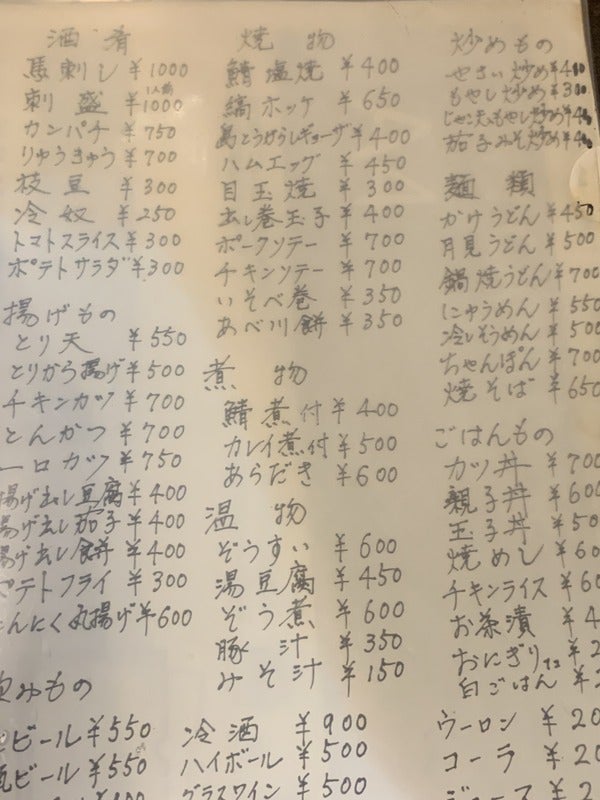 酒肴
馬刺し ¥1000
刺盛 1人前 ¥1000
カンパチ ¥750
りゅうきゅう ¥700
枝豆 ¥300
冷奴 ¥250
トマトスライス ¥300
ポテトサラダ ¥300
揚げもの
とり天 ¥550
とりから揚げ ¥500
チキンカツ ¥700
とんかつ ¥700
一口カツ ¥750
揚げ出し豆腐 ¥400
揚げ出し茄子 ¥400
揚げ出し餅 ¥400
ポテトフライ ¥300
にんにく丸揚げ ¥600
飲みもの
ビール ¥550
ビール ¥550
焼物
鯖塩焼 ¥400
縞ホッケ ¥650
島とうがらしギョーザ ¥400
ハムエッグ ¥450
目玉焼 ¥300
出し巻玉子 ¥400
ポークソテー ¥700
チキンソテー ¥700
いそべ巻 ¥350
あべ川餅 ¥350
煮物
鯖煮付 ¥400
カレイ煮付 ¥500
あらだき ¥600
温物
ぞうすい ¥600
湯豆腐 ¥450
ぞう煮 ¥600
豚汁 ¥350
みそ汁 ¥150
冷酒 ¥900
ハイボール ¥500
グラスワイン ¥500
炒めもの
やさい炒め ¥400
もやし炒め ¥300
じゃこ天もやし炒め
茄子みそ炒め
麺類
かけうどん ¥450
月見うどん ¥500
鍋焼うどん ¥700
にゅうめん ¥550
冷しそうめん ¥500
ちゃんぽん ¥700
焼そば ¥650
ごはんもの
カツ丼 ¥700
親子丼 ¥600
玉子丼 ¥50
焼めし ¥60
チキンライス ¥60
お茶漬 ¥4
おにぎり ¥2
白ごはん ¥
ウーロン ¥20
コーラ ¥20
ジュース ¥2